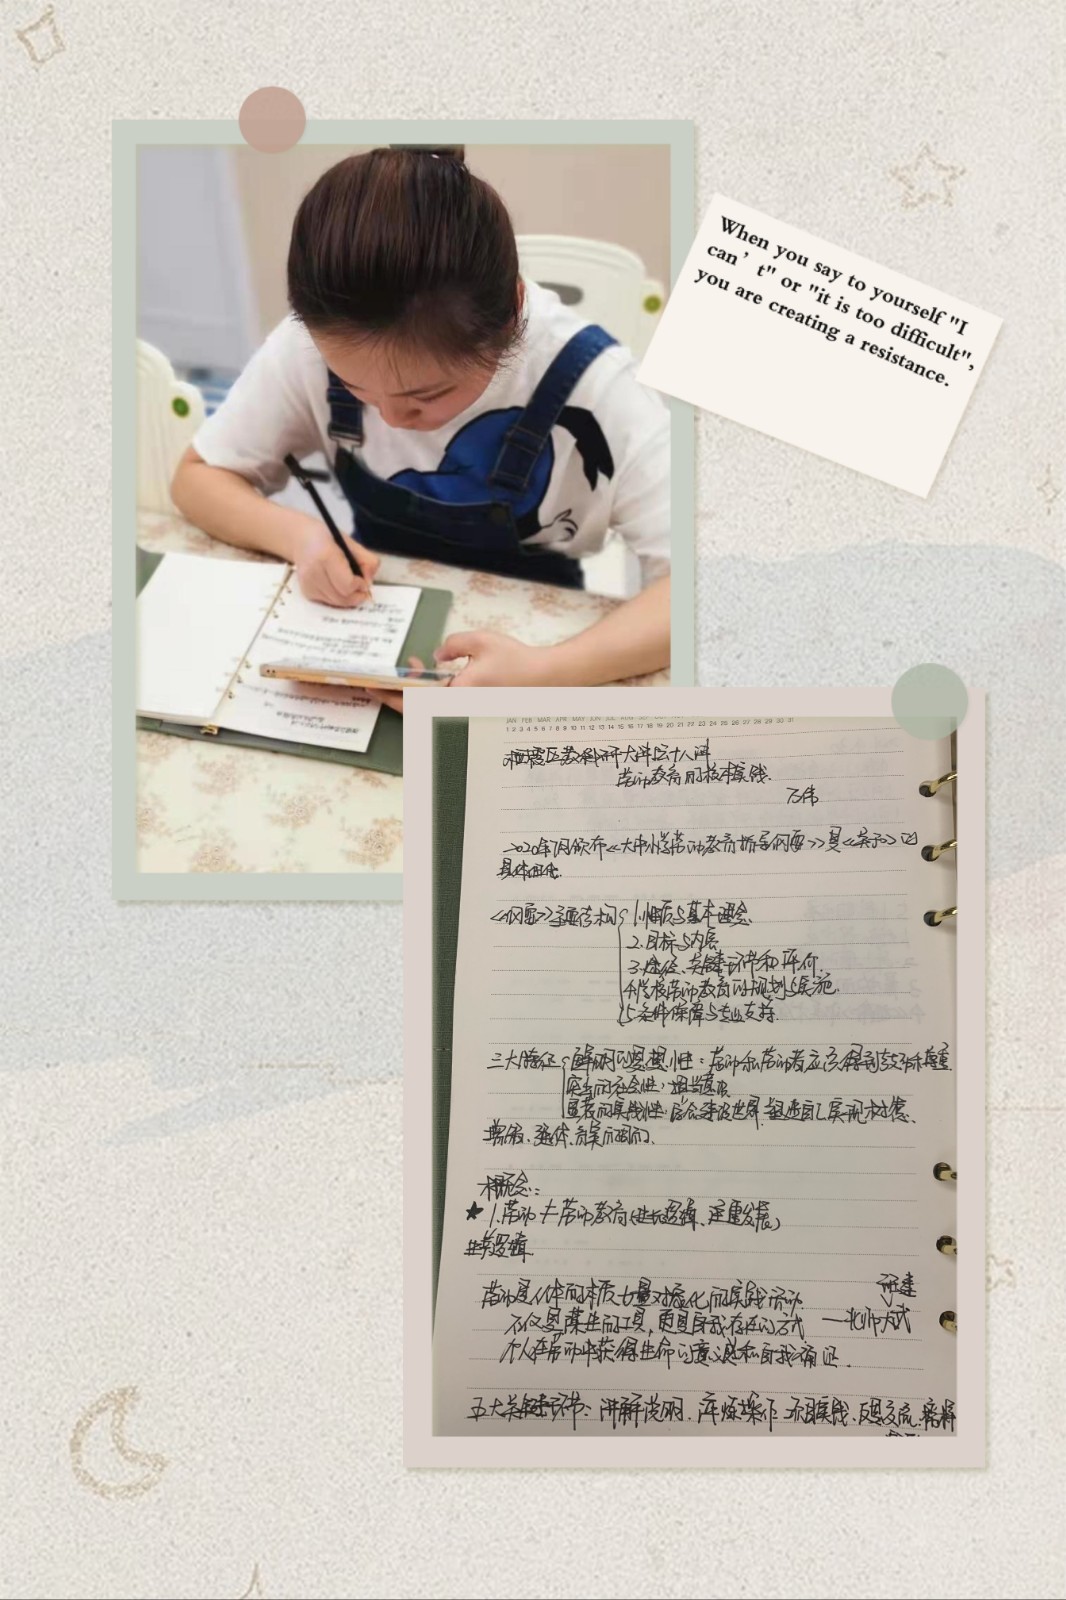 When you say to yourself "I
can't" or "it is too difficult",
you are creating a resistance.
JAN FEB MAR APR MAY JUN JUL AUG SEP
1 2 3 4 5 6 7 8 9 10 11 12 13 14 15 16 17 18 19 20 21 22 23 24 25 26 27 28 29 30 31
栖霞区教科研大讲坛十八讲
劳动教育的核心素养
2020年7月颁布《大中小学劳动教育指导纲要》是《意见》的
具体细化.
《纲要》主要结构 1.性质与基本理念
2.目标与内容
3.途径、关键环节和评价.
4.学校劳动教育的规划与实施.
5.条件保障与专业支持.
三大特征 鲜明的思想性:劳动和劳动者应该得到鼓励和尊重
突出的社会性:
显著的实践性: 世界 塑造自己 实现树德、
增智、强体、育美的目的.
概念:
★ 1.劳动≠劳动教育(逻辑、注重发展)
逻辑.
劳动是人体的本质力量对象化的实践活动.
不仅是谋生的工具,更是自我存在的方式 ——北师大
个人在劳动中获得生命的意义感和自我确证.
五大关键环节:讲解说明、淬炼操作、项目实践、反思交流、榜样